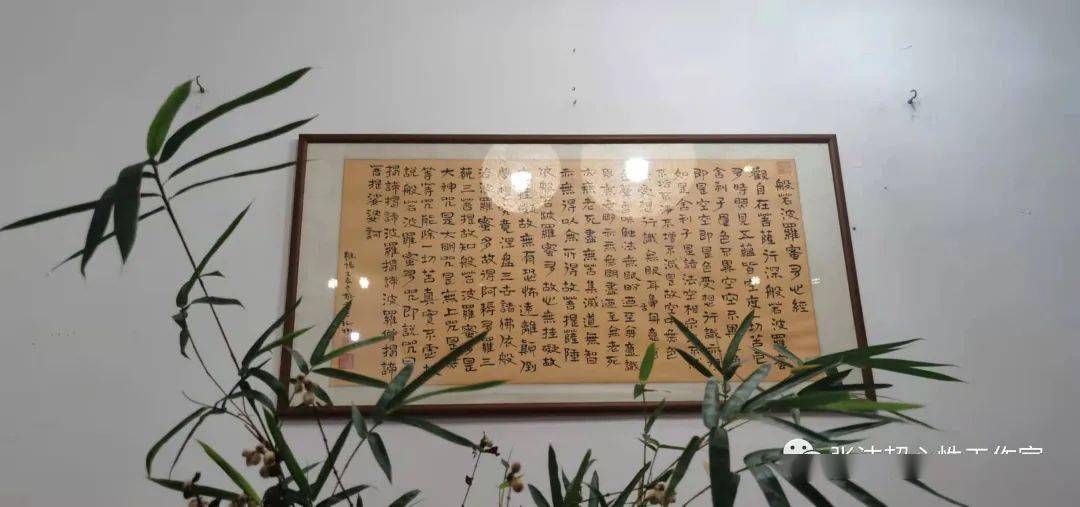 般若波羅蜜多心經
觀自在菩薩行深般若波羅蜜
多時照見五蘊皆空度一切苦厄
舍利子色不異空空不異色
即是空空即是色受想行識亦
如是舍利子是諸法空相不
不垢不淨不增不減是故空無色
受想行識無眼耳鼻舌意
色聲香味觸法無眼界乃至無意識
界無無明亦無無明盡乃至無老死
亦無老死盡無苦集滅道無智
亦無得以無所得故菩提薩埵
依般若波羅蜜多故心無挂礙故
無挂礙故無有恐怖遠離顛倒
夢想究竟涅盤三世諸佛依般
若波羅蜜多故得阿耨多羅三
藐三菩提故知般若波羅蜜多是
大神咒是大明咒是無上咒是無
等等咒能除一切苦真實不虛故
說般若波羅蜜多咒即說咒曰
揭諦揭諦波羅揭諦波羅僧揭諦
菩提娑婆訶
心性工作室